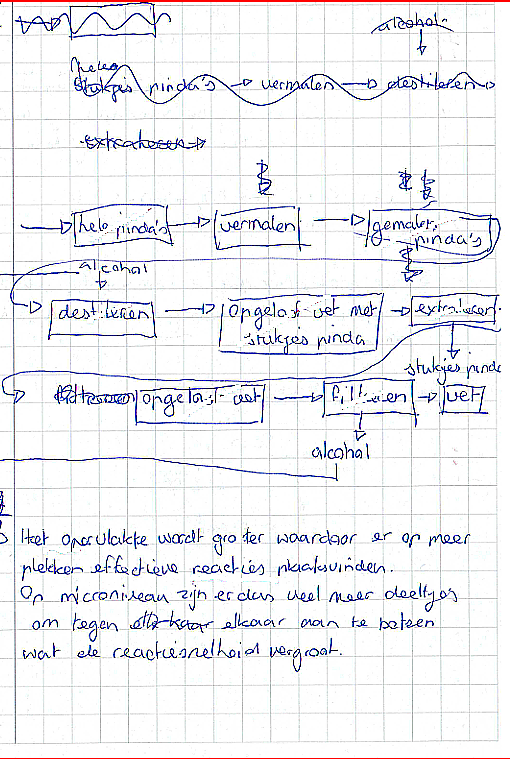 alcohol
Hele
stukjes pinda's → vermalen → destileren →
extraheren →
→ hele pinda's → vermalen → gemalen pinda's
alcohol
→ destileren → opgelost vet met stukjes pinda → extraheren
stukjes pinda
→ opgelost vet → filtreren → vet
alcohol
Het oppervlakte wordt groter waardoor er op meer
plekken effectieve reacties plaatsvinden.
Op microniveau zijn er dus veel meer deeltjes
om tegen elkaar aan te botsen
wat de reactiesnelheid vergroot.